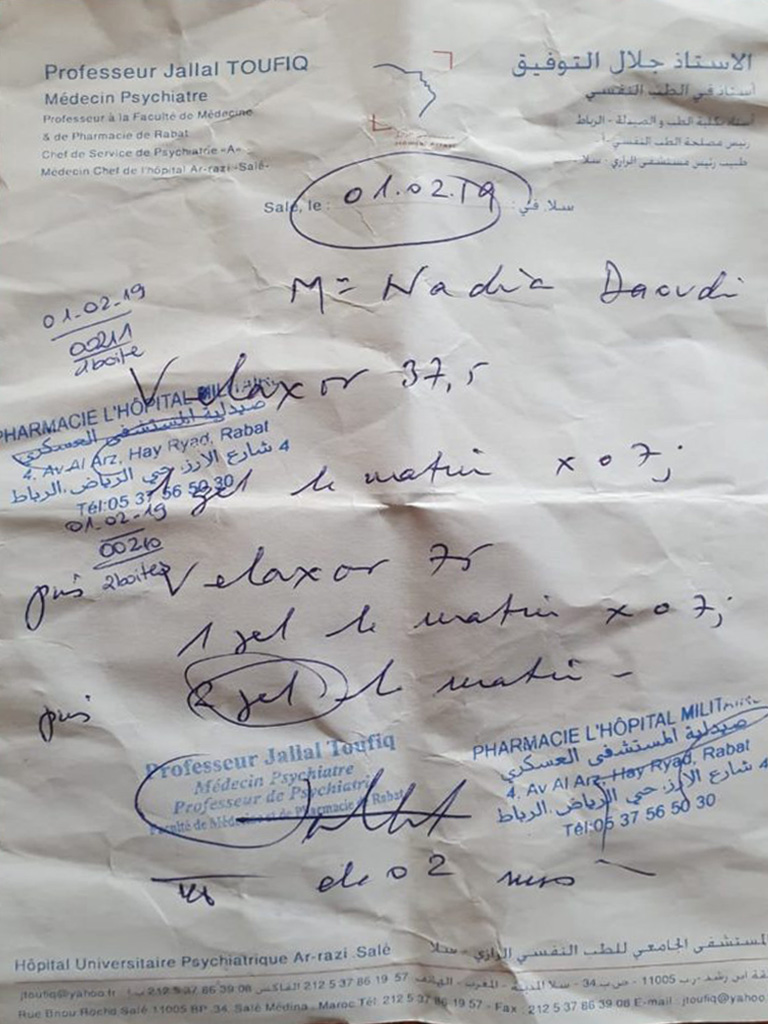 Professeur Jallal TOUFIQ
Médecin Psychiatre
Professeur à la Faculté de Médecine
& de Pharmacie de Rabat
Chef de Service de Psychiatrie «A»
Médecin Chef de l'hôpital Ar-razi -Salé-
الاستاذ جلال التوفيق
أستاذ في الطب النفسي
أستاذ بكلية الطب و الصيدلة - الرباط
رئيس مصلحة الطب النفسي - أ
طبيب رئيس مستشفى الرازي - سلا
Salé, le : 01.02.19 سلا، في :
M= Nadia Daoudi
01-02-19
00211
1boite
Velaxor 37,5
PHARMACIE L'HÔPITAL MILITAIRE
صيدلية المستشفى العسكري
4, Av Al Arz, Hay Ryad, Rabat
4 شارع الارز، حي الرياض، الرباط
Tél:05 37 56 50 30
1 gel le matin x 07j
01-02-19
00210
2boites
puis Velaxor 75
1 gel le matin x 07j
puis 2 gel le matin -
Professeur Jallal Toufiq
Médecin Psychiatre
Professeur de Psychiatrie
Faculté de Médecine et de Pharmacie de Rabat
PHARMACIE L'HÔPITAL MILITAIRE
صيدلية المستشفى العسكري
4, Av Al Arz, Hay Ryad, Rabat
4 شارع الارز، حي الرياض، الرباط
Tél:05 37 56 50 30
de 02 mois
Hôpital Universitaire Psychiatrique Ar-razi .Salé
المستشفى الجامعي للطب النفسي الرازي - سلا
jtoufiq@yahoo.fr : 212 5 37 86 39 08 الفاكس 212 5 37 86 19 57 الهاتف - المغرب - سلا المدينة - 34 ص.ب - 11005 زنقة ابن رشد
Rue Bnou Rochd Salé 11005 BP .34. Salé Médina , Maroc Tél: 212 5 37 86 19 57 - Fax : 212 5 37 86 39 08 E-mail : jtoufiq@yahoo.fr